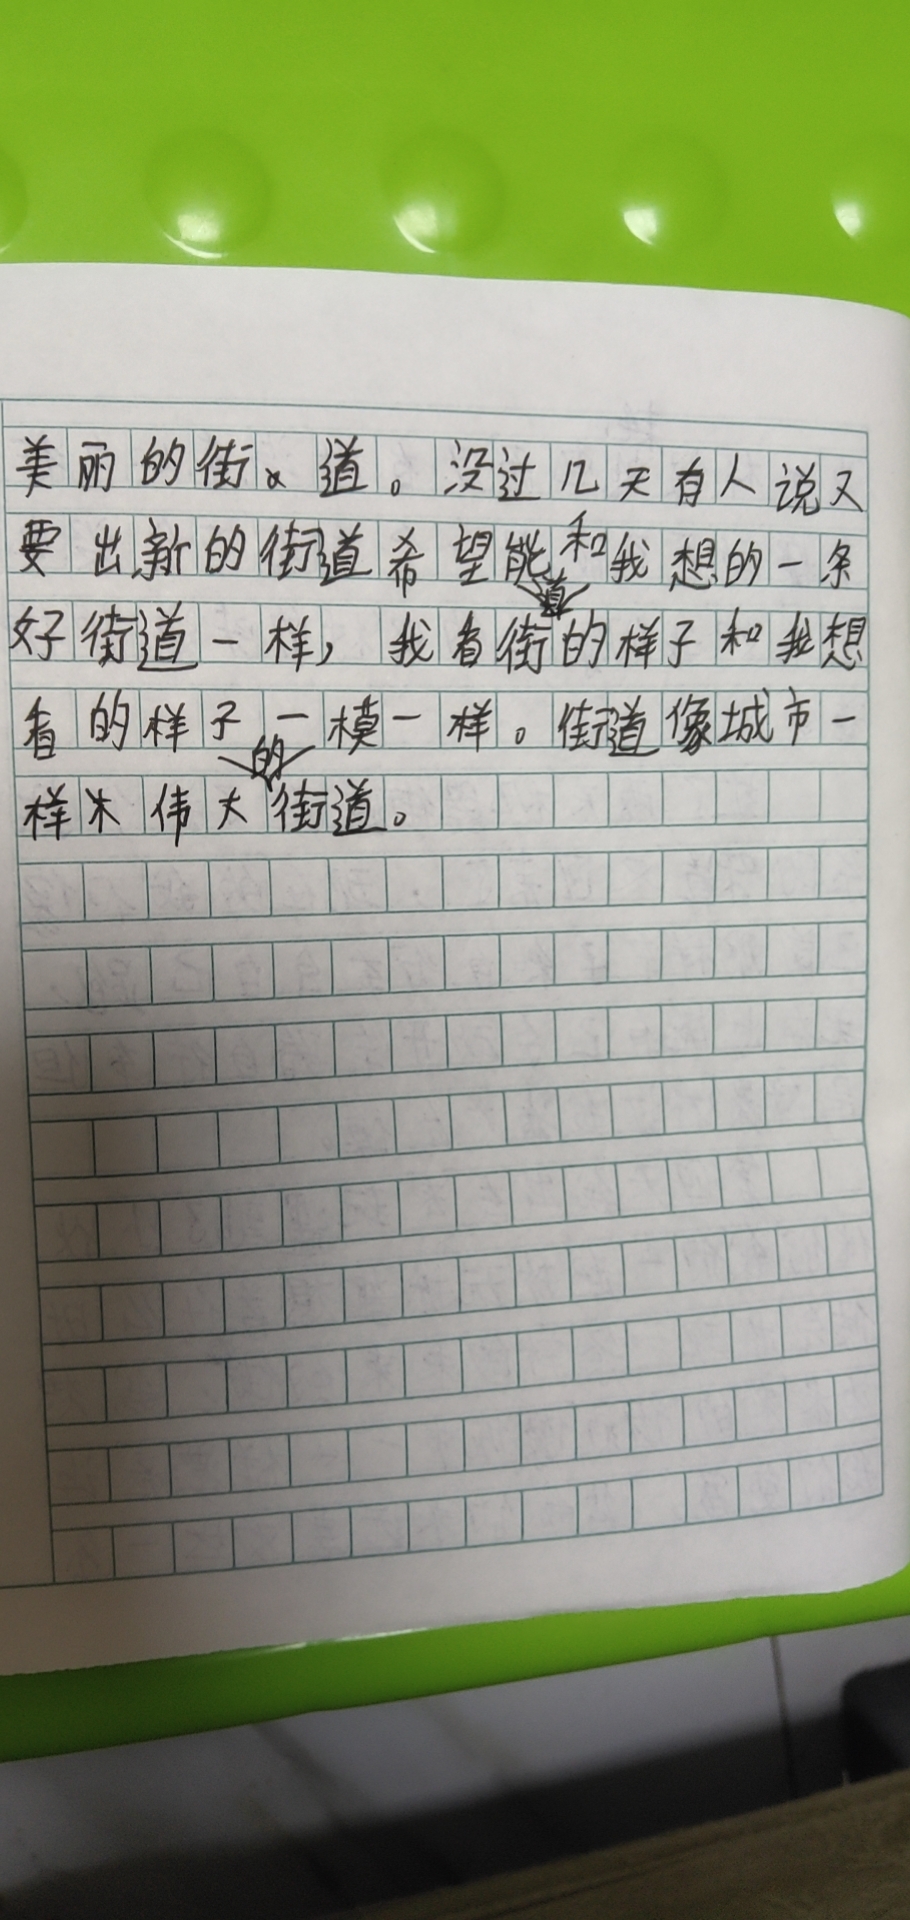 美丽的街道。没过几天有人说又
要出新的街道希望能和我想的一条
好街道一样,我看街道的样子和我想
看的样子一模一样。街道像城市一
样伟大的街道。